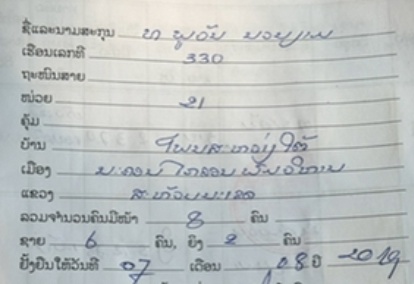 ຊື່ແລະນາມສະກຸນ ທ ພູວັນ
ເຮືອນເລກທີ 330
ຖະໜົນສາຍ
ໜ່ວຍ 21
ຄຸ້ມ
ບ້ານ ໂພນສະຫວ່າງໃຕ້
ເມືອງ ນະຄອນ ໄກສອນ ພົມວິຫານ
ແຂວງ ສະຫວັນນະເຂດ
ລວມຈຳນວນຄົນມີໜ້າ 8 ຄົນ
ຊາຍ 6 ຄົນ, ຍິງ 2 ຄົນ
ຢັ້ງຢືນໃຫ້ວັນທີ 07 ເດືອນ 08 ປີ 2019